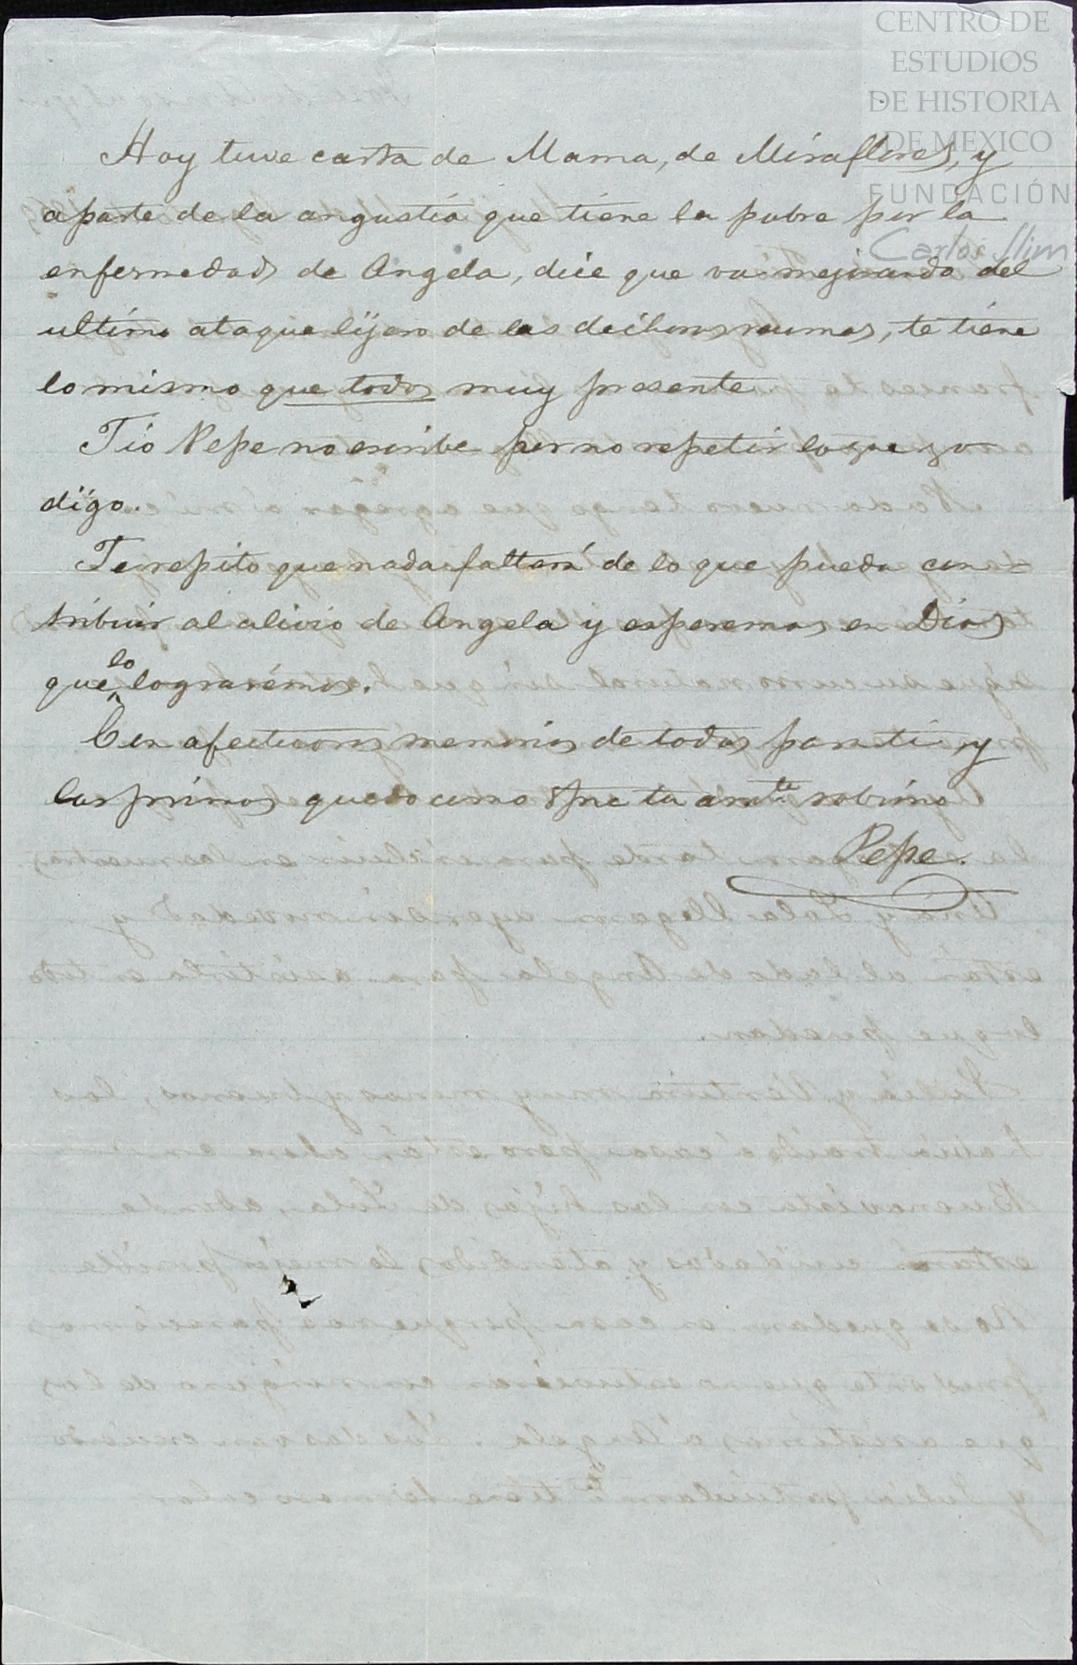 CENTRO DE
ESTUDIOS
DE HISTORIA
DE MEXICO
FUNDACIÓN
Carlos Slim
Hoy tuve carta de Mama, de Miraflores, y
aparte de la angustia que tiene la pobre por la
enfermedad de Angela, dice que va mejorando del
ultimo ataque lijero de las reumas, te tiene
lo mismo que todos muy presente
Tio Pepe no escribe por no repetir lo que yo
digo.
Te repito que nada faltará de lo que pueda con-
tribuir al alivio de Angela y esperemos en Dios
que lo lograrémos.
Con afectuosas memorias de todos para ti y
los primos quedo como spre tu amte sobrino
Pepe.